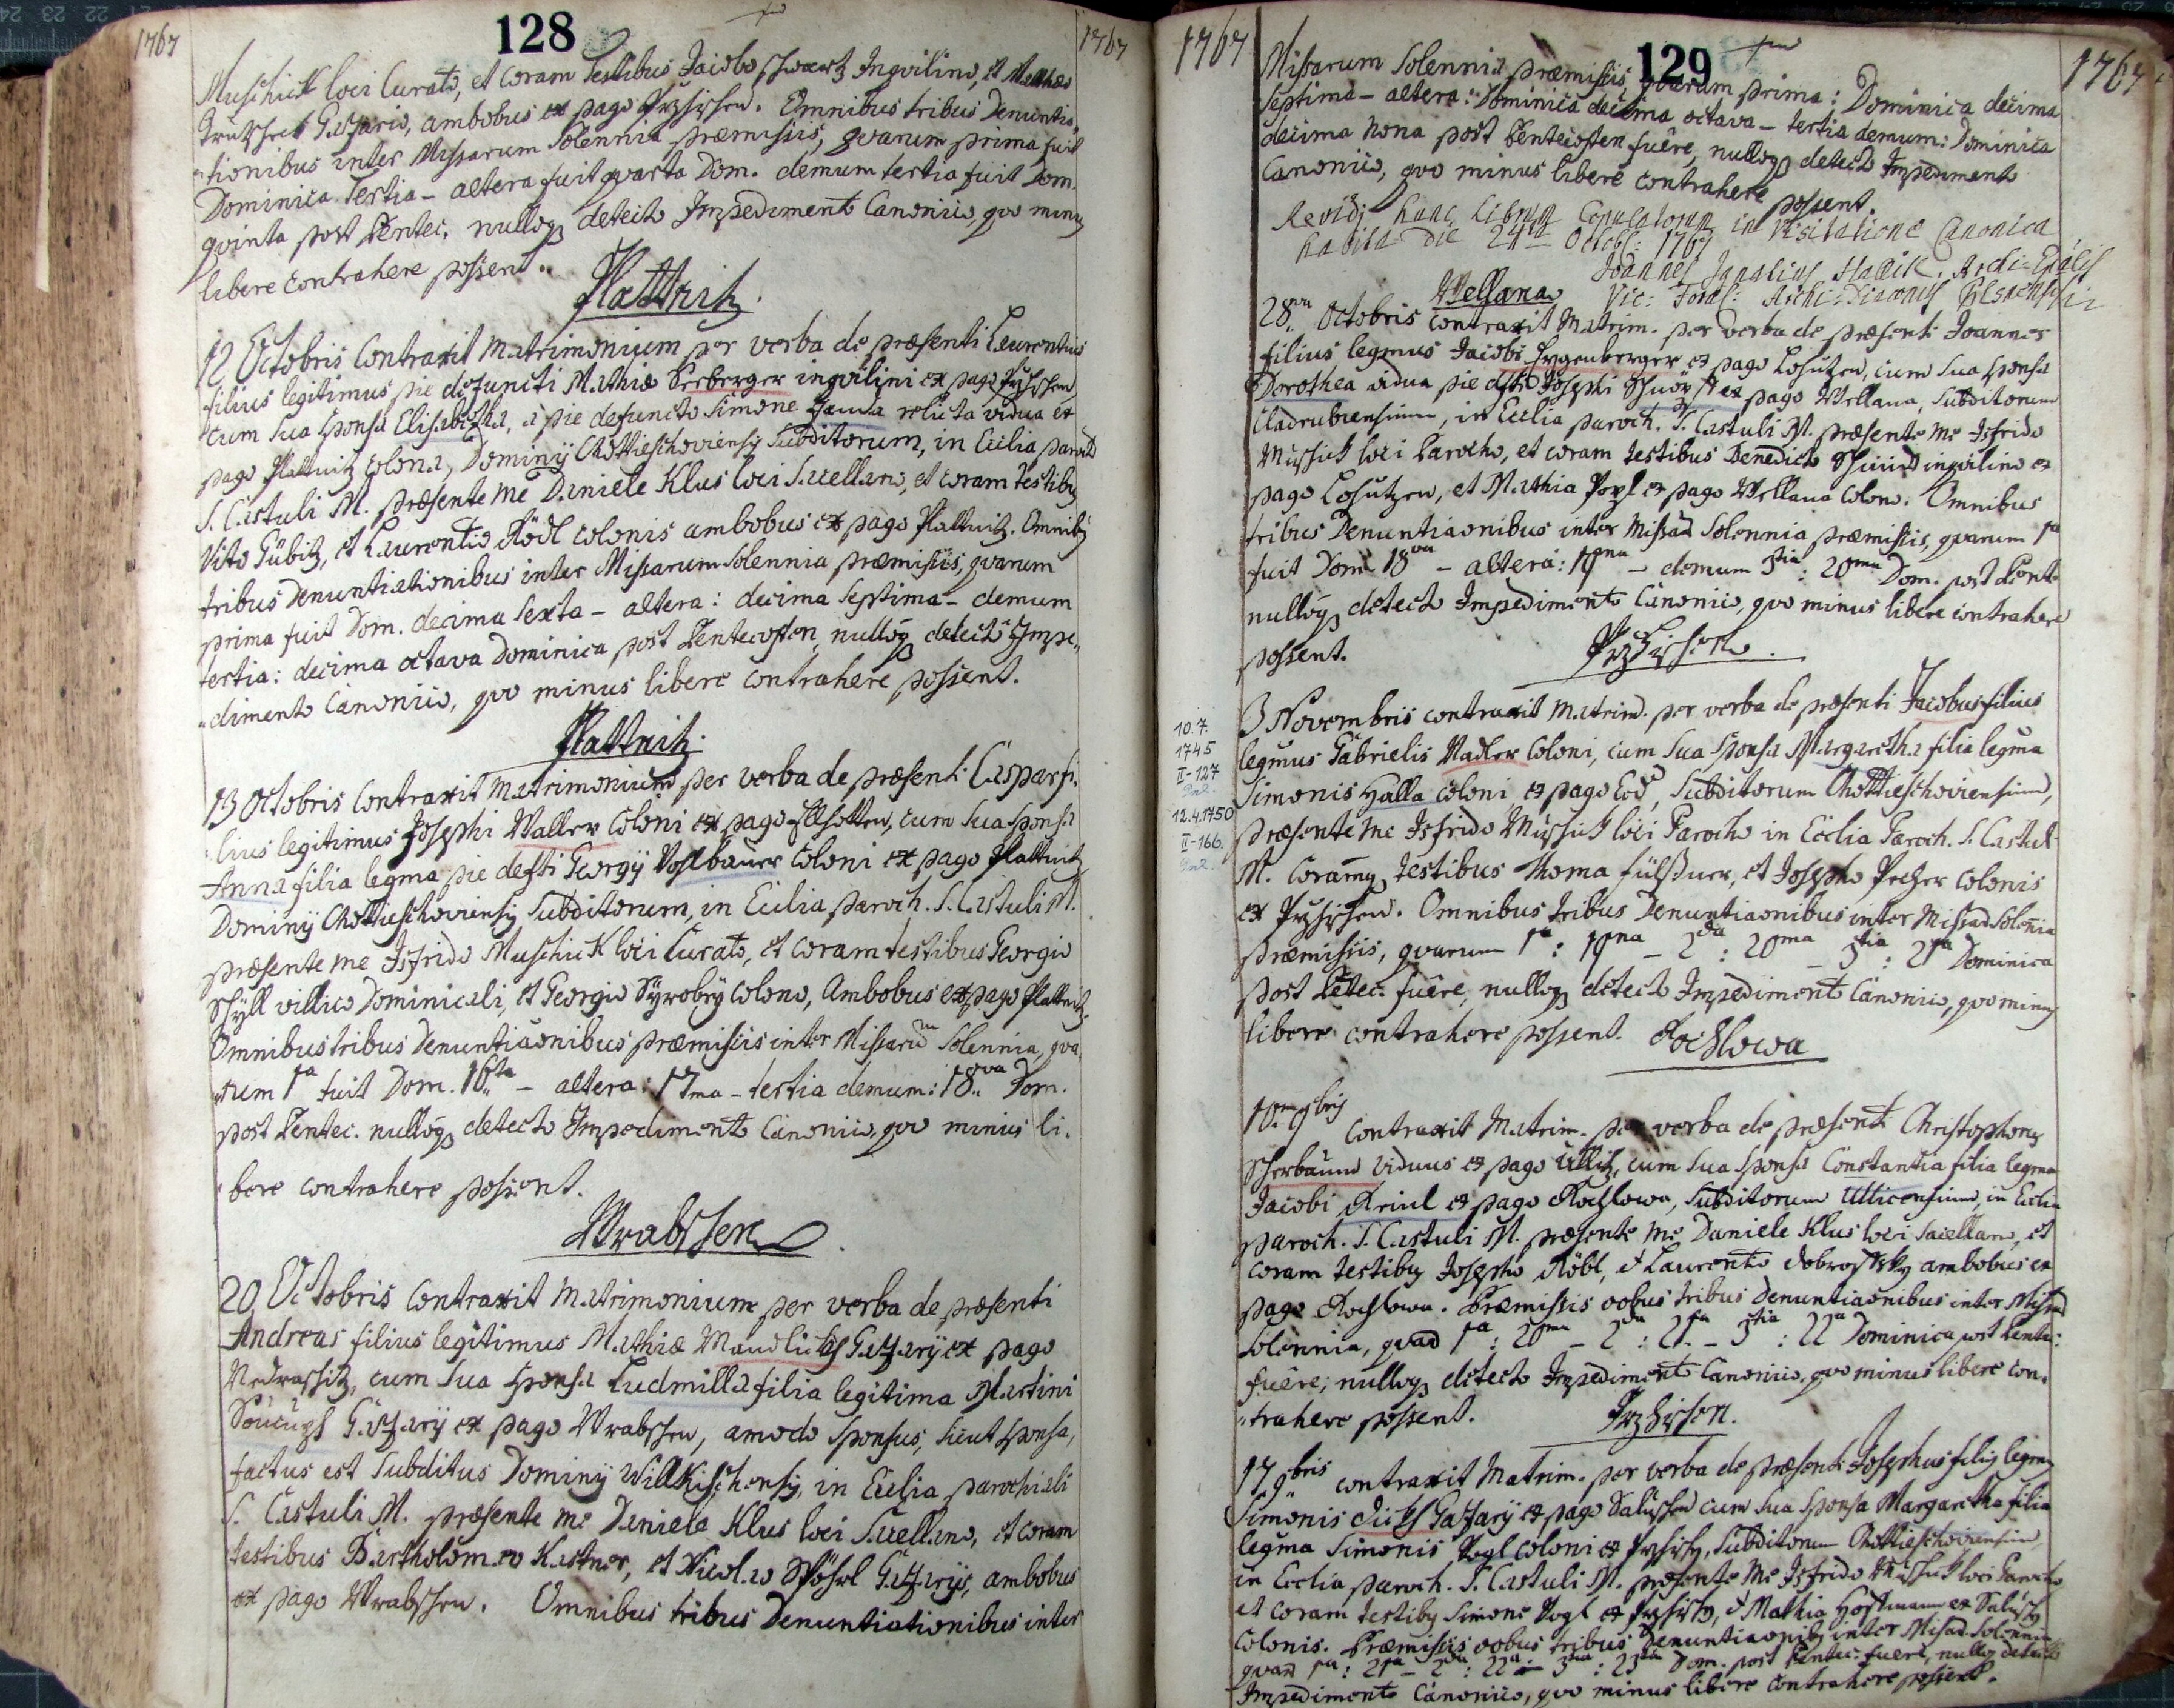 1767
128
1767
Muschick loci Curato, et coram Testibus Jacobo Schwartz Inqvilino, et Mathæo
Gazario, ambobus ex pago Przischen. Omnibus tribus Denuntia„
„tionibus inter Missarum Solennia præmissis, qvarum prima fuit
Dominica Tertia - altera fuit qvarta Dom. demum tertia fuit Dom.
qvinta post Pentec. nulloq; detecto Impedimento Canonico, qvo minus
libere contrahere possent.
Plattnitz.
12 Octobris Contraxit Matrimonium per verba de præsenti Laurentius
filius legitimus pie defuncti Mathiæ Seeberger inqvilini ex pago Przischen
cum Sua Sponsa Elisabetha, a pie defuncto Simone relicta vidua ex
pago Plattnitz Colona, Dominij Chotieschoviensis Subditorum, in Ecclia paroch
S. Castuli M. præsente me Daniele Klus loci Sacellano, et coram testibus
Vito Gübitz, et Laurentio Rödl colonis ambobus ex pago Plattnitz. Omnibus
tribus Denuntiationibus inter Missarum Solennia præmissis, qvarum
prima fuit Dom. decima Sexta - altera: decima Septima - demum
tertia: decima octava Dominica post Pentecosten, nulloq; detecto Impe„
„dimento Canonico, qvo minus libere contrahere possent.
Plattnitz.
13 Octobris Contraxit Matrimonium per verba de præsenti Caspar fi„
„lius legitimus Josephi Waller Coloni ex pago Ellhotten, cum Sua Sponsa
Anna filia legma pie defti Georgij Voslbauer Coloni ex pago Plattnitz
Dominij Chotieschoviensis Subditorum, in Ecclia paroch. S. Castuli M.
præsente me Isfrido Muschick loci Curato, et coram testibus Georgio
Schÿll villico Dominicali, et Georgio Syrobey Colono, Ambobus ex pago Plattnitz.
Omnibus tribus Denuntiaonibus præmissis inter Missarum Solennia, qva„
„rum 1a fuit Dom. 16ta - altera: 17ma - tertia demum: 18va Dom.
post Pentec. nulloq; detecto Impedimento Canonico, qvo minus li„
„bere contrahere possent.
Wrabschen
20 Octobris Contraxit Matrimonium per verba de præsenti
Andreas filius legitimus Mathiæ Gazarij ex pago
Nedraschitz, cum Sua Sponsa Ludmilla filia legitima Martini
Gazarij ex pago Wrabschen, amodo Sponsus, sicut Sponsa,
factus est Subditus Dominij Willkischensis, in Ecclia parochiali
S. Castuli M. præsente me Daniele Klus loci Sacellano, et coram
testibus Bartholomæo Kastner, et Nicolao Gazarijs, ambobus
ex pago Wrabschen. Omnibus tribus Denuntiationibus inter
1767
129
1767
Missarum Solennia præmissis, qvarum prima: Dominica decima
Septima - altera: Dominica decima octava - tertia demum: Dominica
decima nona post Pentecosten fuêre, nulloq; detecto Impedimento
Canonico, qvo minus libere contrahere possent.
Revidi hunc Librum Copulatorum in Visitatione Canonica
habita die 24ta Octobr: 1767
Joannes Ignatius
Vic: Foran: Archi-Diaconus Pilsnensis
Wellana
28va Octobris contraxit Matrim. per verba de præsenti Joannes
filius legmus Jacobi ex pago Losutzen, cum Sua Sponsa
Dorothea vidua pie dfti Josephi ex pago Wellana, Subditorum
Cladrubiensium, in Ecclia paroch. S. Castuli M. præsente Me Isfrido
Muschick loci Parocho, et coram testibus Benedicto Schmid inqvilino ex
pago Losutzen, et Mathia Pogl ex pago Wellana Colono. Omnibus
tribus Denuntiaonibus inter Missarum Solennia præmissis, qvarum 1a
fuit Dom. 18va - altera: 19na - demum 3tia: 20ma Dom. post Pente.
nulloq; detecto Impedimento Canonico, qvo minus libere contrahere
possent.
Przischen.
10.7.
1745
II-127
12.4.1750
II-166.
3 Novembris contraxit Matrim. per verba de præsenti Jacobus filius
legmus Gabrielis Nadler Coloni, cum Sua Sponsa Margaretha filia legma
Simonis Halla Coloni ex pago Eod, Subditorum Chotieschoviensium,
præsente Me Isfrido Muschick loci Parocho in Ecclia Paroch. S. Castuli
M. Coramq; testibus Thoma, et Josepho Pecher Colonis
ex Przischen. Omnibus tribus Denuntiaonibus inter Missarum Solennia
præmissis, qvarum 1a: 19na - 2da: 20ma - 3tia: 21a Dominica
post Pentec. fuêre, nulloq; detecto Impedimento Canonico, qvo minus
libere contrahere possent.
Rochlowa
10. 9bris Contraxit Matrim. per verba de præsenti Christophorus
Scherbaum Viduus ex pago Ullitz, cum Sua Sponsa Constantia filia legma
Jacobi ex pago Rochlowa, Subditorum Ulicensium, in Ecclia
paroch. S. Castuli M. præsente Me Daniele Klus loci Sacellano, et
coram testibus Josepho Röbl, et Laurentio ambobus ex
pago Rochlowa. Præmissis oobus tribus Denuntiaonibus inter Missarum
Solennia, qvarum 1a: 20ma - 2da: 21a - 3tia: 22a Dominica post Pentec:
fuêre; nulloq; detecto Impedimento Canonico, qvo minus libere con„
„trahere possent.
Przischen.
17 9bris contraxit Matrim. per verba de præsenti Josephus filius legmus
Simonis Gazarij ex pago Saluschen cum Sua Sponsa Margaretha filia
legma Simonis Vogl Coloni ex Przischen, Subditorum Chotieschoviensium,
in Ecclia paroch. S. Castuli M. præsente Me Isfrido Muschick loci Parocho,
et coram testibus Simone Vogl ex Przischen, et Mathia Hostmann ex Saluschen
Colonis. Præmissis oobus tribus Denuntiaonibus inter Missarum Solennia
qvarum 1a: 21a - 2da: 22a - 3tia: 23tia Dom. post Pentec. fuere, nulloq; detecto
Impedimento Canonico, qvo minus libere contrahere possent.